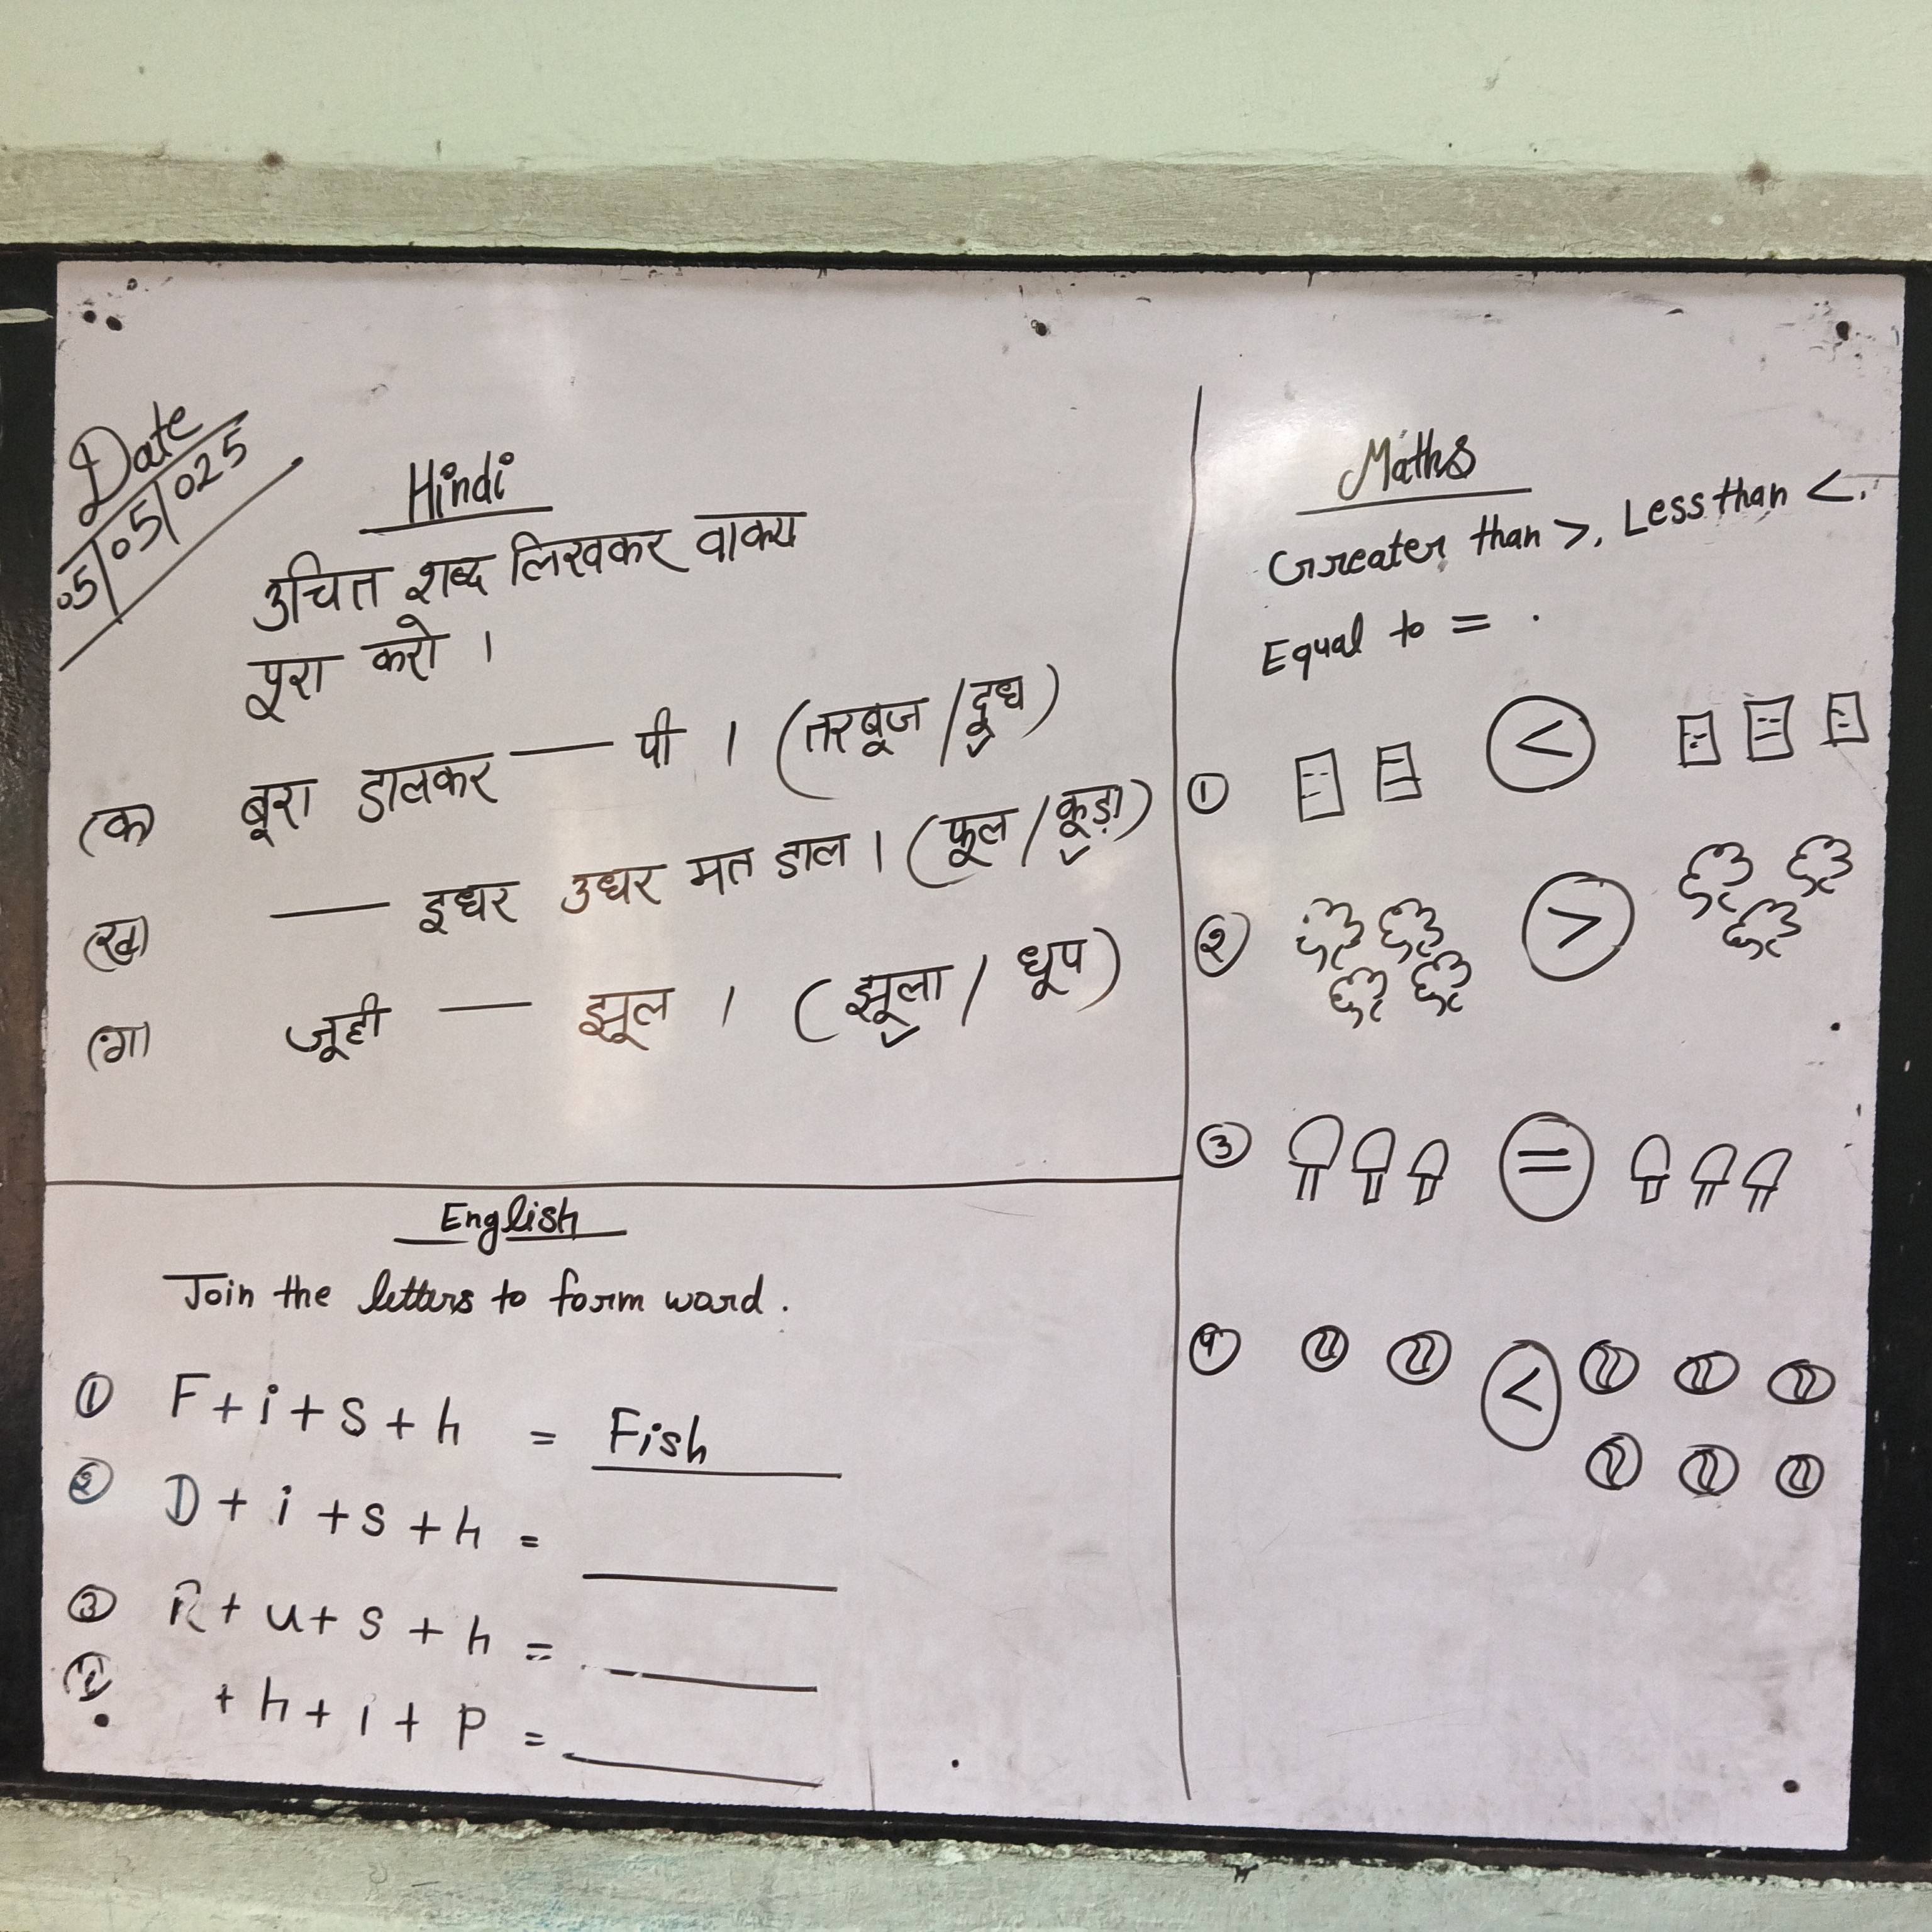 Date
05/05/025
Hindi
उचित शब्द लिखकर वाक्य
पूरा करो ।
(क) बूरा डालकर — पी । (तरबूज / दूध)
(ख) — इधर उधर मत डाल । (फूल / कूड़ा)
(ग) जूही — झूल । (झूला / धूप)
English
Join the letters to form word.
① F + i + s + h = Fish
② D + i + s + h =
③ R + u + s + h =
+ h + i + p =
Maths
Greater than >, Less than <.
Equal to = .
① <
② >
③ =
④ <